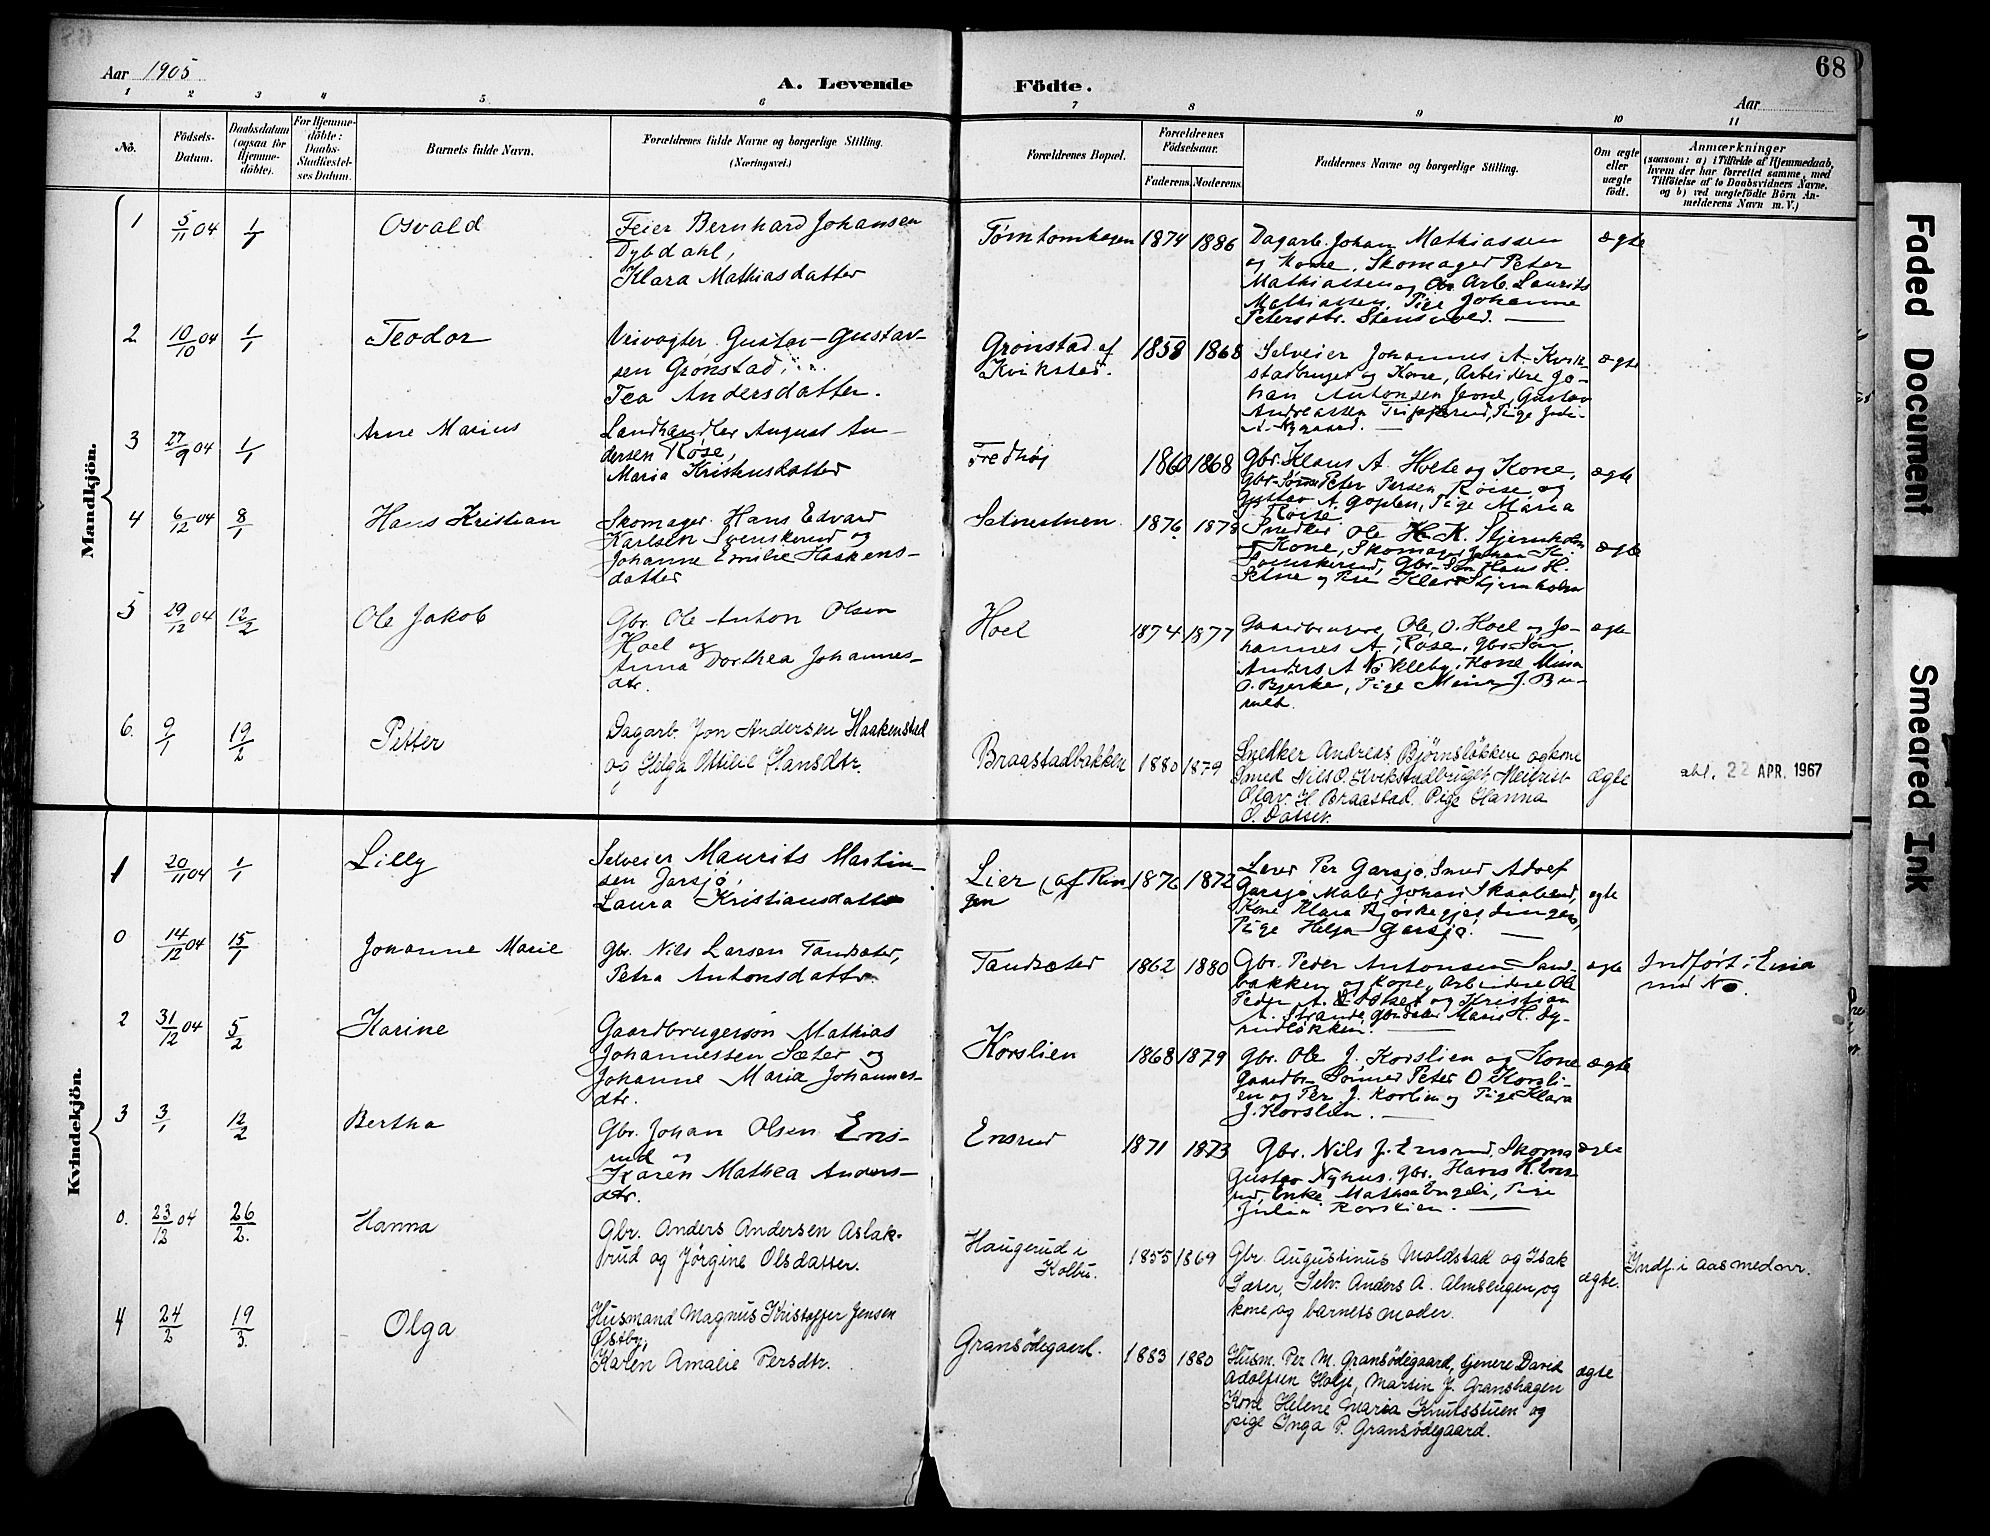 68
Aar 1905
A. Levende Födte.
Aar
1 2 3 4 5 6 7 8 9 10 11
No.
Födsels-
Datum.
Daabsdatum
(ogsaa for
Hjemme-
döbte).
For Hjemme-
döbte:
Daabs-
Stadfæstel-
ses Datum.
Barnets fulde Navn.
Forældrenes fulde Navne og borgerlige Stilling.
(Næringsvei.)
Forældrenes Bopæl.
Forældrenes
Födselsaar.
Faderens. Moderens.
Faddernes Navne og borgerlige Stilling.
Om ægte
eller
uægte
födt.
Anmærkninger
(saasom: a) i Tilfælde af Hjemmedaab,
hvem der har forrettet samme, med
Tilföielse af to Daabsvidners Navne,
og b) ved uægtefödte Börn An-
melderens Navn m. V.)
Mandkjön.
1
5/11 04
1/1
Osvald
Feier Bernhard Johansen
Dybdahl,
Klara Mathiasdatter
1874 1886
Dagarb. Johan Mathiassen
og Kone, Skomager Peter
Mathiassen og Arb. Laurits
Mathiassen, Pige Johanne
Petersdtr.
ægte
2
10/10 04
1/1
Teodor
Veivogter Gustav Gustav-
sen Grønstad,
Tea Andersdatter.
Grønstad af
Kvikstad.
1858 1868
Selveier Johannes A. Kvik-
stadbruget og Kone, Arbeidere Jo-
han Antonsen Gustav
Andreassen Pige
ægte
3
27/9 04
1/1
Arne Marius
Landhandler August An-
dersen Røse,
Maria Kristensdatter
Fredhøj
1860 1868
Gbr. Klaus A. Holte og Kone,
Gbr. Søn Peter Røise og
Gustav A. Goplen, Pige Maria
Røise
ægte
4
6/12 04
8/1
Hans Kristian
Skomager Hans Edvard
Karlsen Svenskerud og
Johanne Emilie Haakens-
datter
1876 1878
Snedker Ole H. K. Stjernholm
og Kone, Skomager Johan K.
Svenskerud, Gbr. Søn Hans H.
Sætne og Pige Klara Stjernholm
ægte
5
29/12 04
12/2
Ole Jakob
Gbr. Ole Anton Olsen
Hoel og
Anna Dorthea Johannes-
dtr.
Hoel
1874 1877
Gaardbrugere Ole O. Hoel og Jo-
hannes A. Røse, Gbr. Søn
Anders A. Nøkleby, Kone Mina
O. Bjerke, Pige J.
ægte
6.
9/1
19/2
Petter
Dagarb. Jon Andersen Haakenstad
og Helga Ottilie Hansdtr.
Braastadbakken
1880 1879
Snedker Andreas Bjørnsløkken og kone
Smed Nils O. Kvikstadbruget, Meierist
Olav H. Braastad. Pige Hanna
O.
ægte
abt. 22 APR. 1967
Kvindekjön.
1
20/11 04
1/1
Lilly
Selveier Maurits Martin-
sen Garsjø,
Laura Kristiansdatter
Lier (af Rin
gen
1876 1872
Lærer Per Garsjø, Smed Adolf
Garsjø, Maler Johan
Kone Klara
Pige Helga Garsjø.
ægte
0
14/12 04
15/1
Johanne Marie
Gbr. Nils Larsen Tandsæter,
Petra Antonsdatter
Tandsæter
1862 1880
Gbr. Peder Antonsen Sand-
bakken og Kone, Arbeidere Ole
Peder A. og Kristian
A. Strande, Marie H.
ægte
Indført i Eina
No
2
31/12 04
5/2
Karine
Gaardbrugersøn Mathias
Johannessen Sæter og
Johanne Maria Johannes-
dtr.
Korslien
1868 1879
Gbr. Ole J. Korslien og Kone
Gaardbr. Sønner Peter O. Korsli-
en og Per J. Korslien og Pige Klara
J. Korslien.
ægte
3
3/1
12/2
Bertha
Gbr. Johan Olsen Ens-
rud og
Karen Mathea Anders-
dtr.
Ensrud
1871 1873
Gbr. Nils J. Ensrud, Skom.
Gustav Nyhus, Gbr. Hans K. Ens-
rud, Enke Mathea Engeli, Pige
Julia Korslien.
ægte
0.
23/12 04
26/2.
Hanna
Gbr. Anders Andersen Aslak-
srud og Jørgine Olsdatter.
Haugerud i
Kolbu.
1855 1869
Gbr. Augustinus Moldstad og Isak
Sæter, Selv. Anders A. Almsengen, og
kone, og barnets moder.
ægte.
Indf. i Aas med nr.
4
24/2
19/3.
Olga
Husmand Magnus Kristoffer Jensen
Østby,
Karen Amalie Persdtr.
Gransødegaard.
1883 1880
Husm. Per M. Gransødegaard, tjenere David
Adolfsen Holje, Martin J. Granshagen
Kone Helene Maria Knutsstuen og
pige Inga P. Gransødegaard.
ægte
Faded Document
Smeared Ink